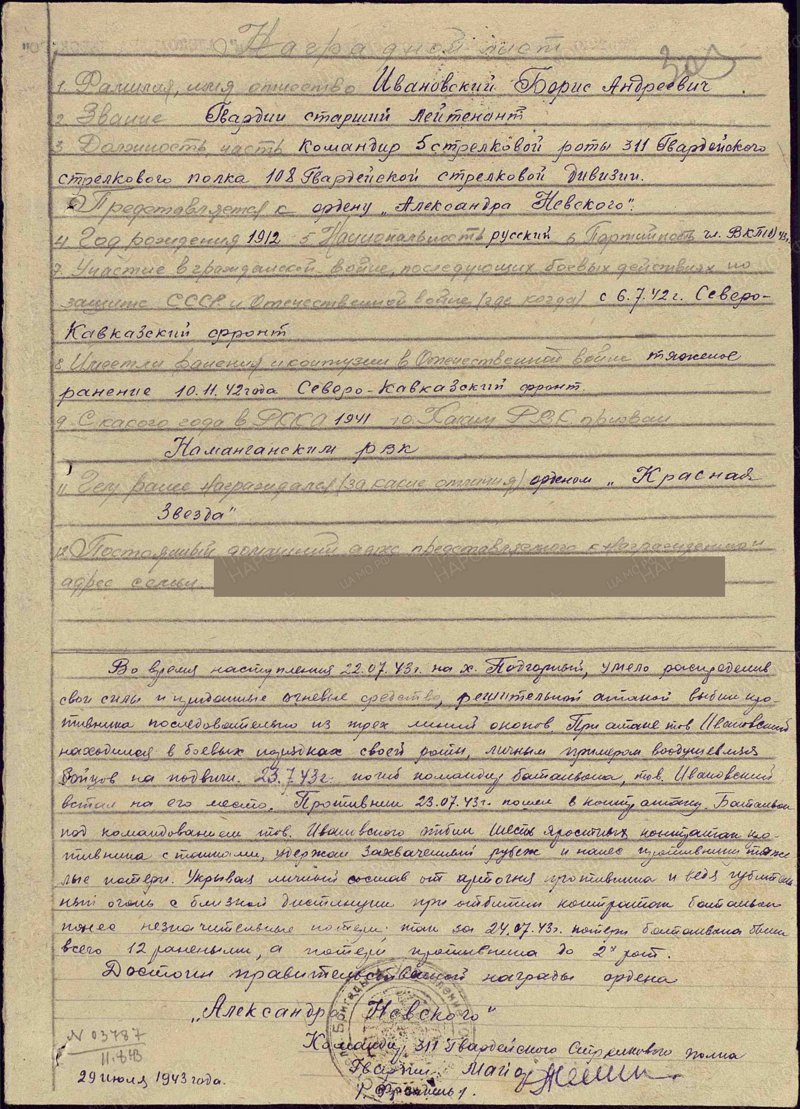 Наградной лист
303
1. Фамилия, имя отчество Ивановский Борис Андреевич.
2. Звание Гвардии старший лейтенант
3. Должность, часть командир 5 стрелковой роты 311 Гвардейского
стрелкового полка 108 Гвардейской стрелковой дивизии.
Представляется к ордену „Александра Невского".
4. Год рождения 1912 5. Национальность русский 6. Партийность чл. ВКП(б)
7. Участие в гражданской войне, последующих боевых действиях по
защите СССР и Отечественной войне (где когда) с 6.7.42г. Северо-
Кавказский фронт
8. Имеет ли ранения и контузии в Отечественной войне тяжелое
ранение 10.11.42 года Северо-Кавказский фронт.
9. С какого года в РККА 1941 10. Каким РВК призван
Наманганским рвк
11. Чем ранее награждался (за какие отличия) орденом „Красная
Звезда"
12. Постоянный домашний адрес представляемого к награждению и
адрес семьи.
Во время наступления 22.07.43г. на х. Подгорный, умело распределив
свои силы и приданные огневые средства, решительной атакой выбил про-
тивника последовательно из трех линий окопов. При атаке тов. Ивановский
находился в боевых порядках своей роты, личным примером воодушевляя
бойцов на подвиги. 23.7.43г. погиб командир батальона, тов. Ивановский
встал на его место. Противник 23.07.43г. пошел в контратаку. Батальон
под командованием тов. Ивановского отбил шесть яростных контратак про-
тивника с танками, удержал захваченный рубеж и нанес противнику тяже-
лые потери. Укрывая личный состав от артогня противника и ведя губитель-
ный огонь с близкой дистанции при отбитии контратак батальон
понес незначительные потери: так за 24.07.43г. потери батальона были
всего 12 ранеными, а потери противника до 2х рот.
Достоин правительственной награды ордена
„Александра Невского"
Командир 311 Гвардейского Стрелкового полка
Гвардии Майор
N 03787
29 июля 1943 года.